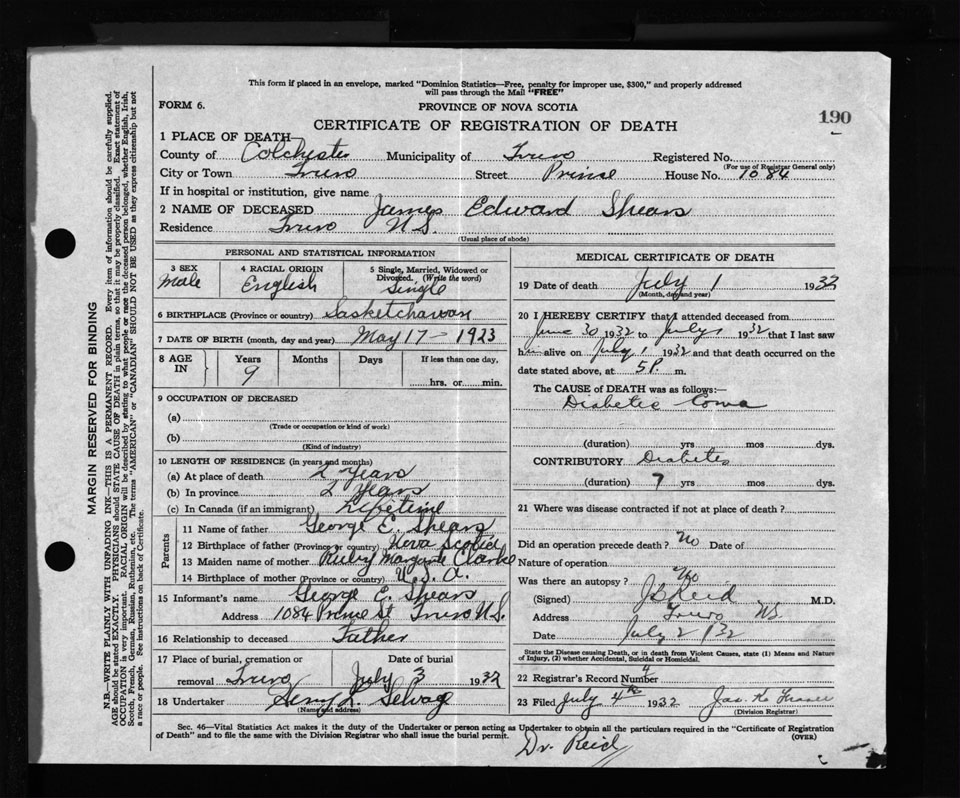 This form if placed in an envelope, marked "Dominion Statistics—Free, penalty for improper use, $300," and properly addressed
will pass through the Mail "FREE"
FORM 6.
PROVINCE OF NOVA SCOTIA
190
CERTIFICATE OF REGISTRATION OF DEATH
1 PLACE OF DEATH
County of Colchester Municipality of Truro Registered No.
(For use of Registrar General only)
City or Town Truro Street Prince House No. 1084
If in hospital or institution, give name
2 NAME OF DECEASED James Edward Shears
Residence Truro N.S.
(Usual place of abode)
PERSONAL AND STATISTICAL INFORMATION
3 SEX 4 RACIAL ORIGIN 5 Single, Married, Widowed or
Divorced. (Write the word)
Male English Single
6 BIRTHPLACE (Province or country) Sasketchawan
7 DATE OF BIRTH (month, day and year) May 17 - 1923
8 AGE IN Years Months Days If less than one day,
9 hrs. or min.
9 OCCUPATION OF DECEASED
(a)
(Trade or occupation or kind of work)
(b)
(Kind of industry)
10 LENGTH OF RESIDENCE (in years and months)
(a) At place of death 2 Years
(b) In province 2 Years
(c) In Canada (if an immigrant) Lifetime
Parents
11 Name of father George E. Shears
12 Birthplace of father (Province or country) Nova Scotia
13 Maiden name of mother Ruby Margaret Clarke
14 Birthplace of mother (Province or country) U.S.A.
15 Informant's name George E. Shears
Address 1084 Prince St Truro N.S.
16 Relationship to deceased Father
17 Place of burial, cremation or Date of burial
removal Truro July 3 1932
18 Undertaker L. Selvage
(Name and address)
MEDICAL CERTIFICATE OF DEATH
19 Date of death July 1 1932
(Month, day and year)
20 I HEREBY CERTIFY that I attended deceased from
June 30 1932 to July 1 1932 that I last saw
him alive on July 1 1932 and that death occurred on the
date stated above, at 5 P. m.
The CAUSE of DEATH was as follows:—
Diabetic Coma
(duration) yrs mos dys.
CONTRIBUTORY Diabetes
(duration) 7 yrs. mos. dys.
21 Where was disease contracted if not at place of death?
Did an operation precede death? No Date of
Nature of operation
Was there an autopsy? No
(Signed) J B Reid M.D.
Address Truro NS
Date July 2 1932
State the Disease causing Death, or in death from Violent Causes, state (1) Means and Nature
of Injury, (2) whether Accidental, Suicidal or Homicidal.
22 Registrar's Record Number 4
23 Filed July 4 1932 Fraser
(Division Registrar)
Sec. 46—Vital Statistics Act makes it the duty of the Undertaker or person acting as Undertaker to obtain all the particulars required in the "Certificate of Registration
of Death" and to file the same with the Division Registrar who shall issue the burial permit. (OVER)
Dr. Reid
190
MARGIN RESERVED FOR BINDING
N.B.—WRITE PLAINLY WITH UNFADING INK—THIS IS A PERMANENT RECORD. Every item of information should be carefully supplied.
AGE should be stated EXACTLY. PHYSICIANS should STATE CAUSE OF DEATH in plain terms, so that it may be properly classified. Exact statement of
OCCUPATION is very important. RACIAL ORIGIN will be described by stating to what people or race the deceased person belonged, whether English, Irish,
Scotch, French, German, Russian, Ruthenian, etc. The terms "AMERICAN" or "CANADIAN" SHOULD NOT BE USED as they express citizenship but not
a race or people. See instructions on back of Certificate.